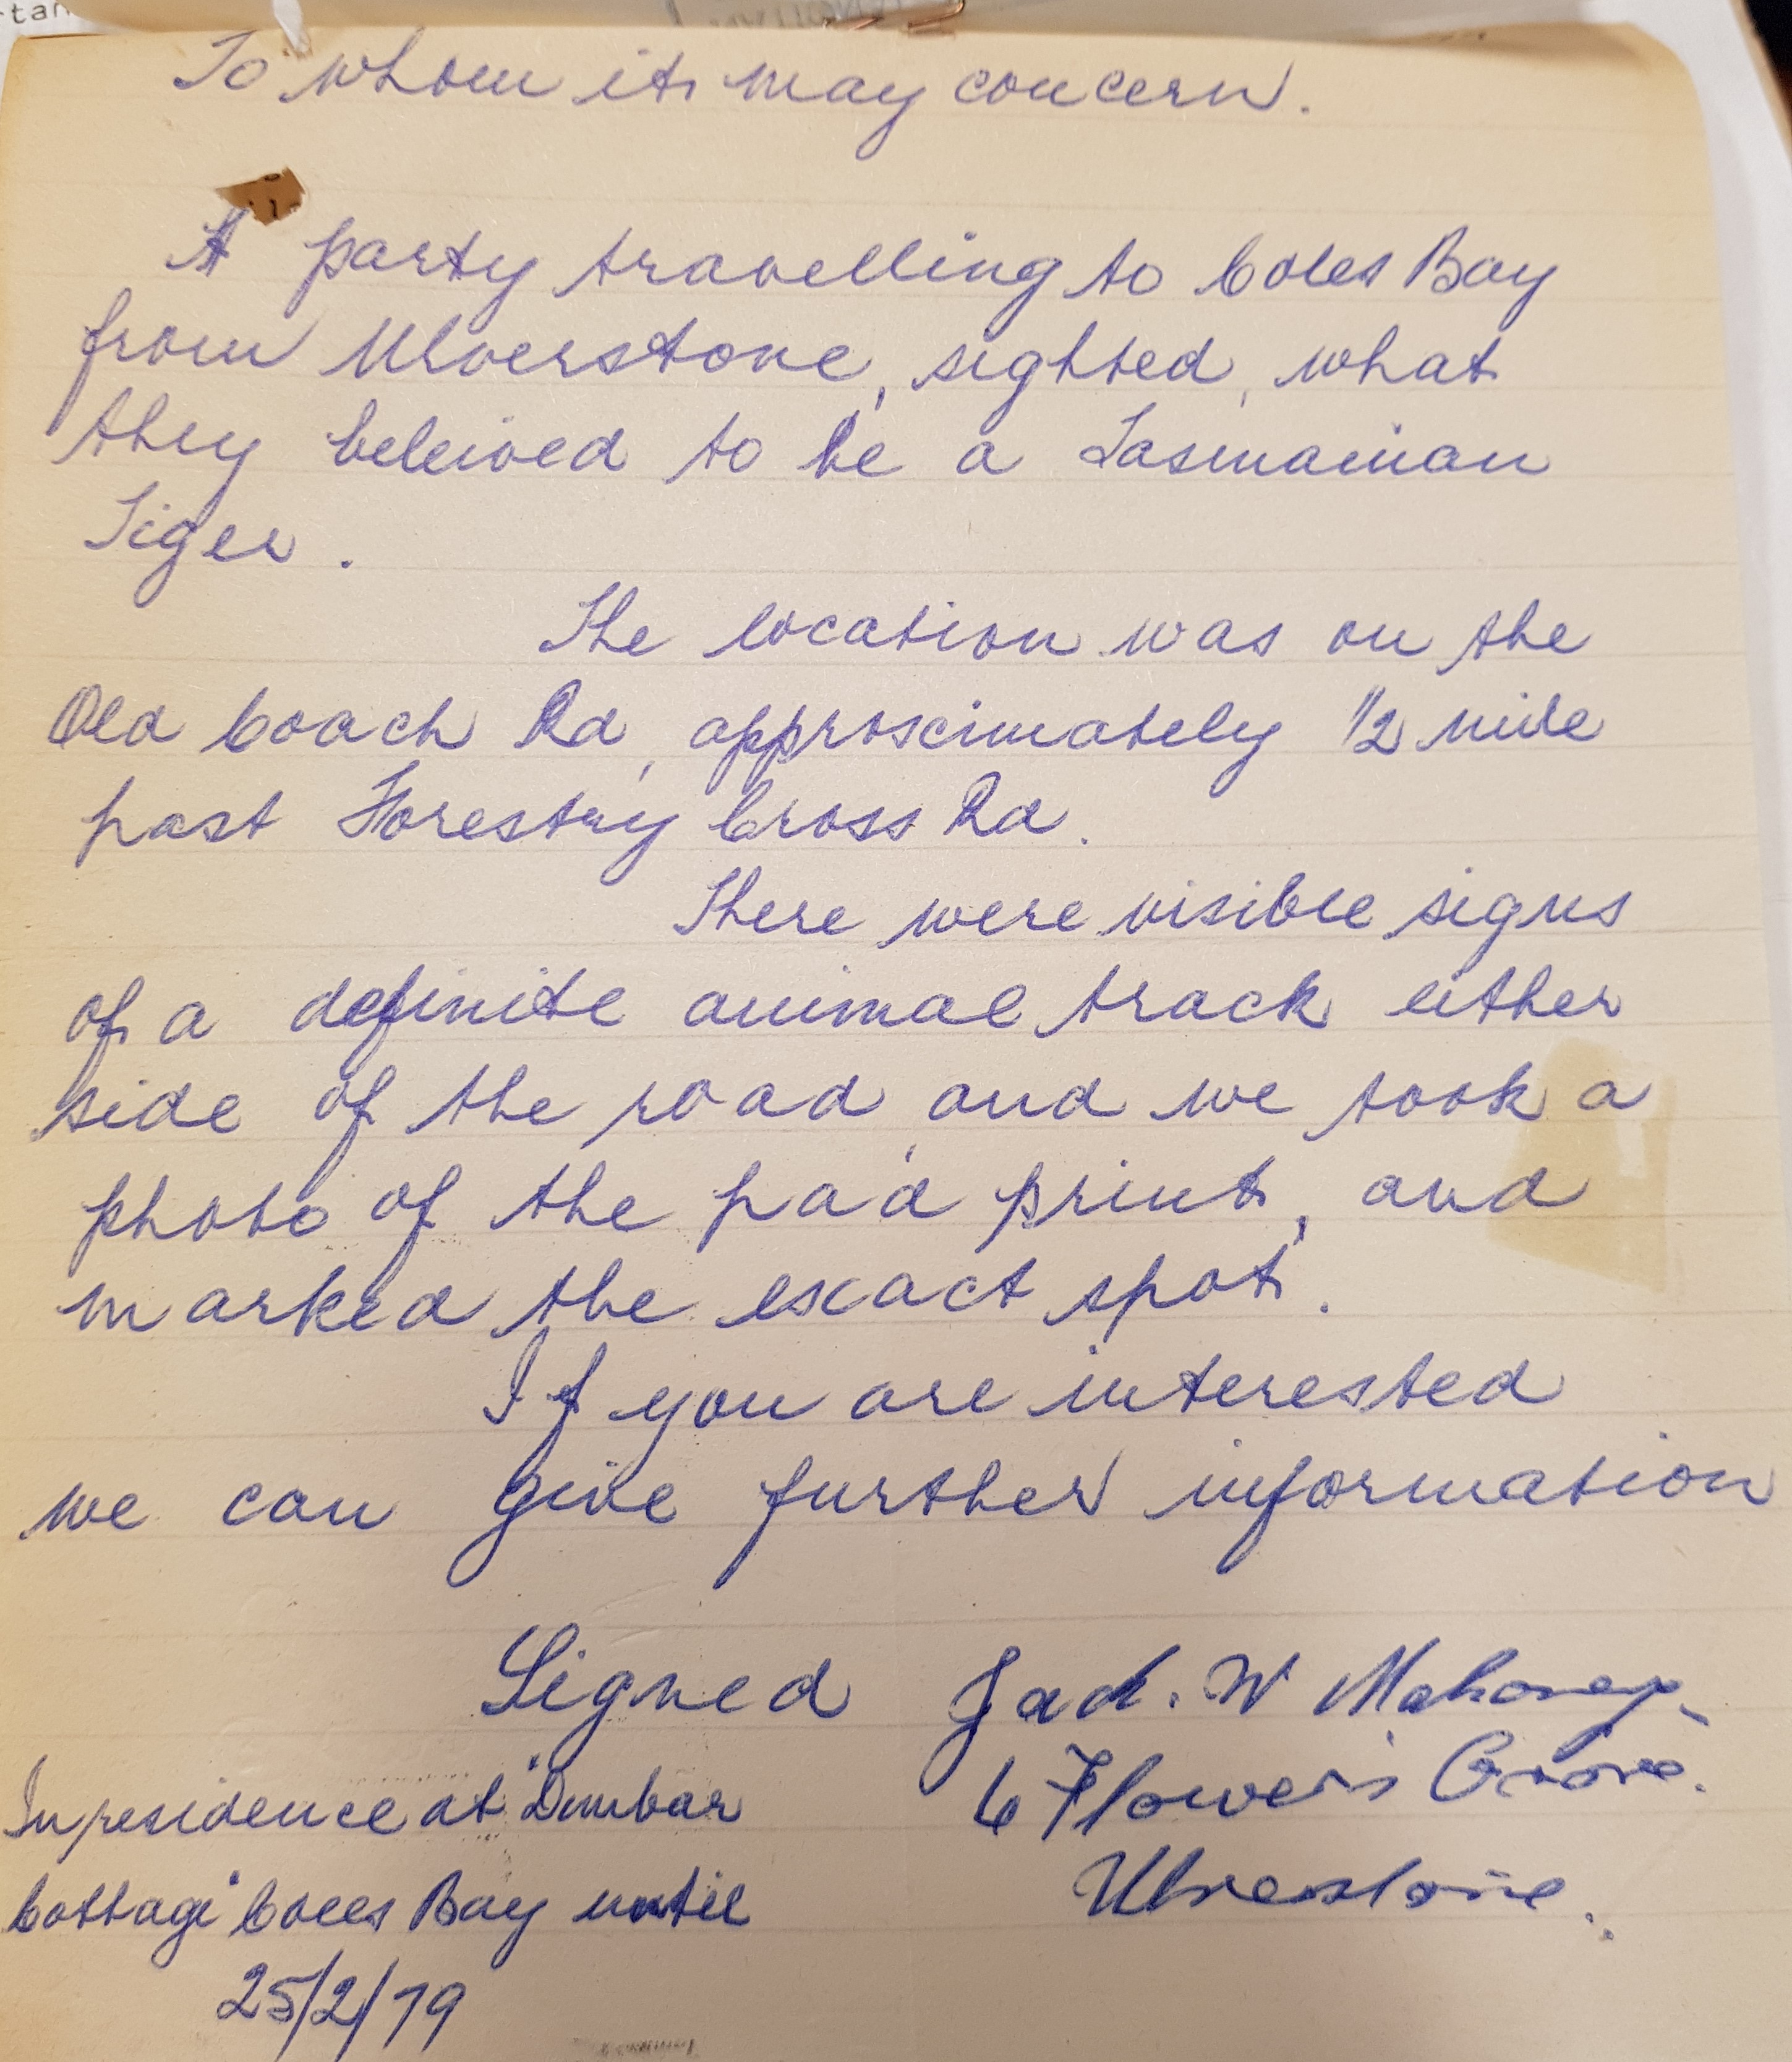 To whom it may concern.
A party travelling to Coles Bay
from Ulverstone, sighted, what
they beleived to be a Tasmanian
Tiger.
The location was on the
Old Coach Rd, approximately 1/2 mile
past Forestry Cross Rd.
There were visible signs
of a definite animal track either
side of the road, and we took a
photo of the pad print, and
marked the exact spot.
If you are interested
we can give further information
Signed W Mahoney
6 Flowers Grove.
Ulverstone.
In residence at "Dunbar
Cottage" Coles Bay until
25/2/79